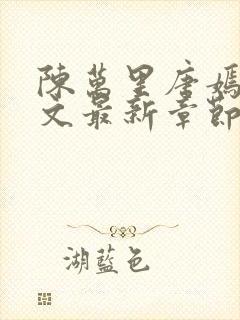 陳萬里唐嫣
文最新章節
湖藍色